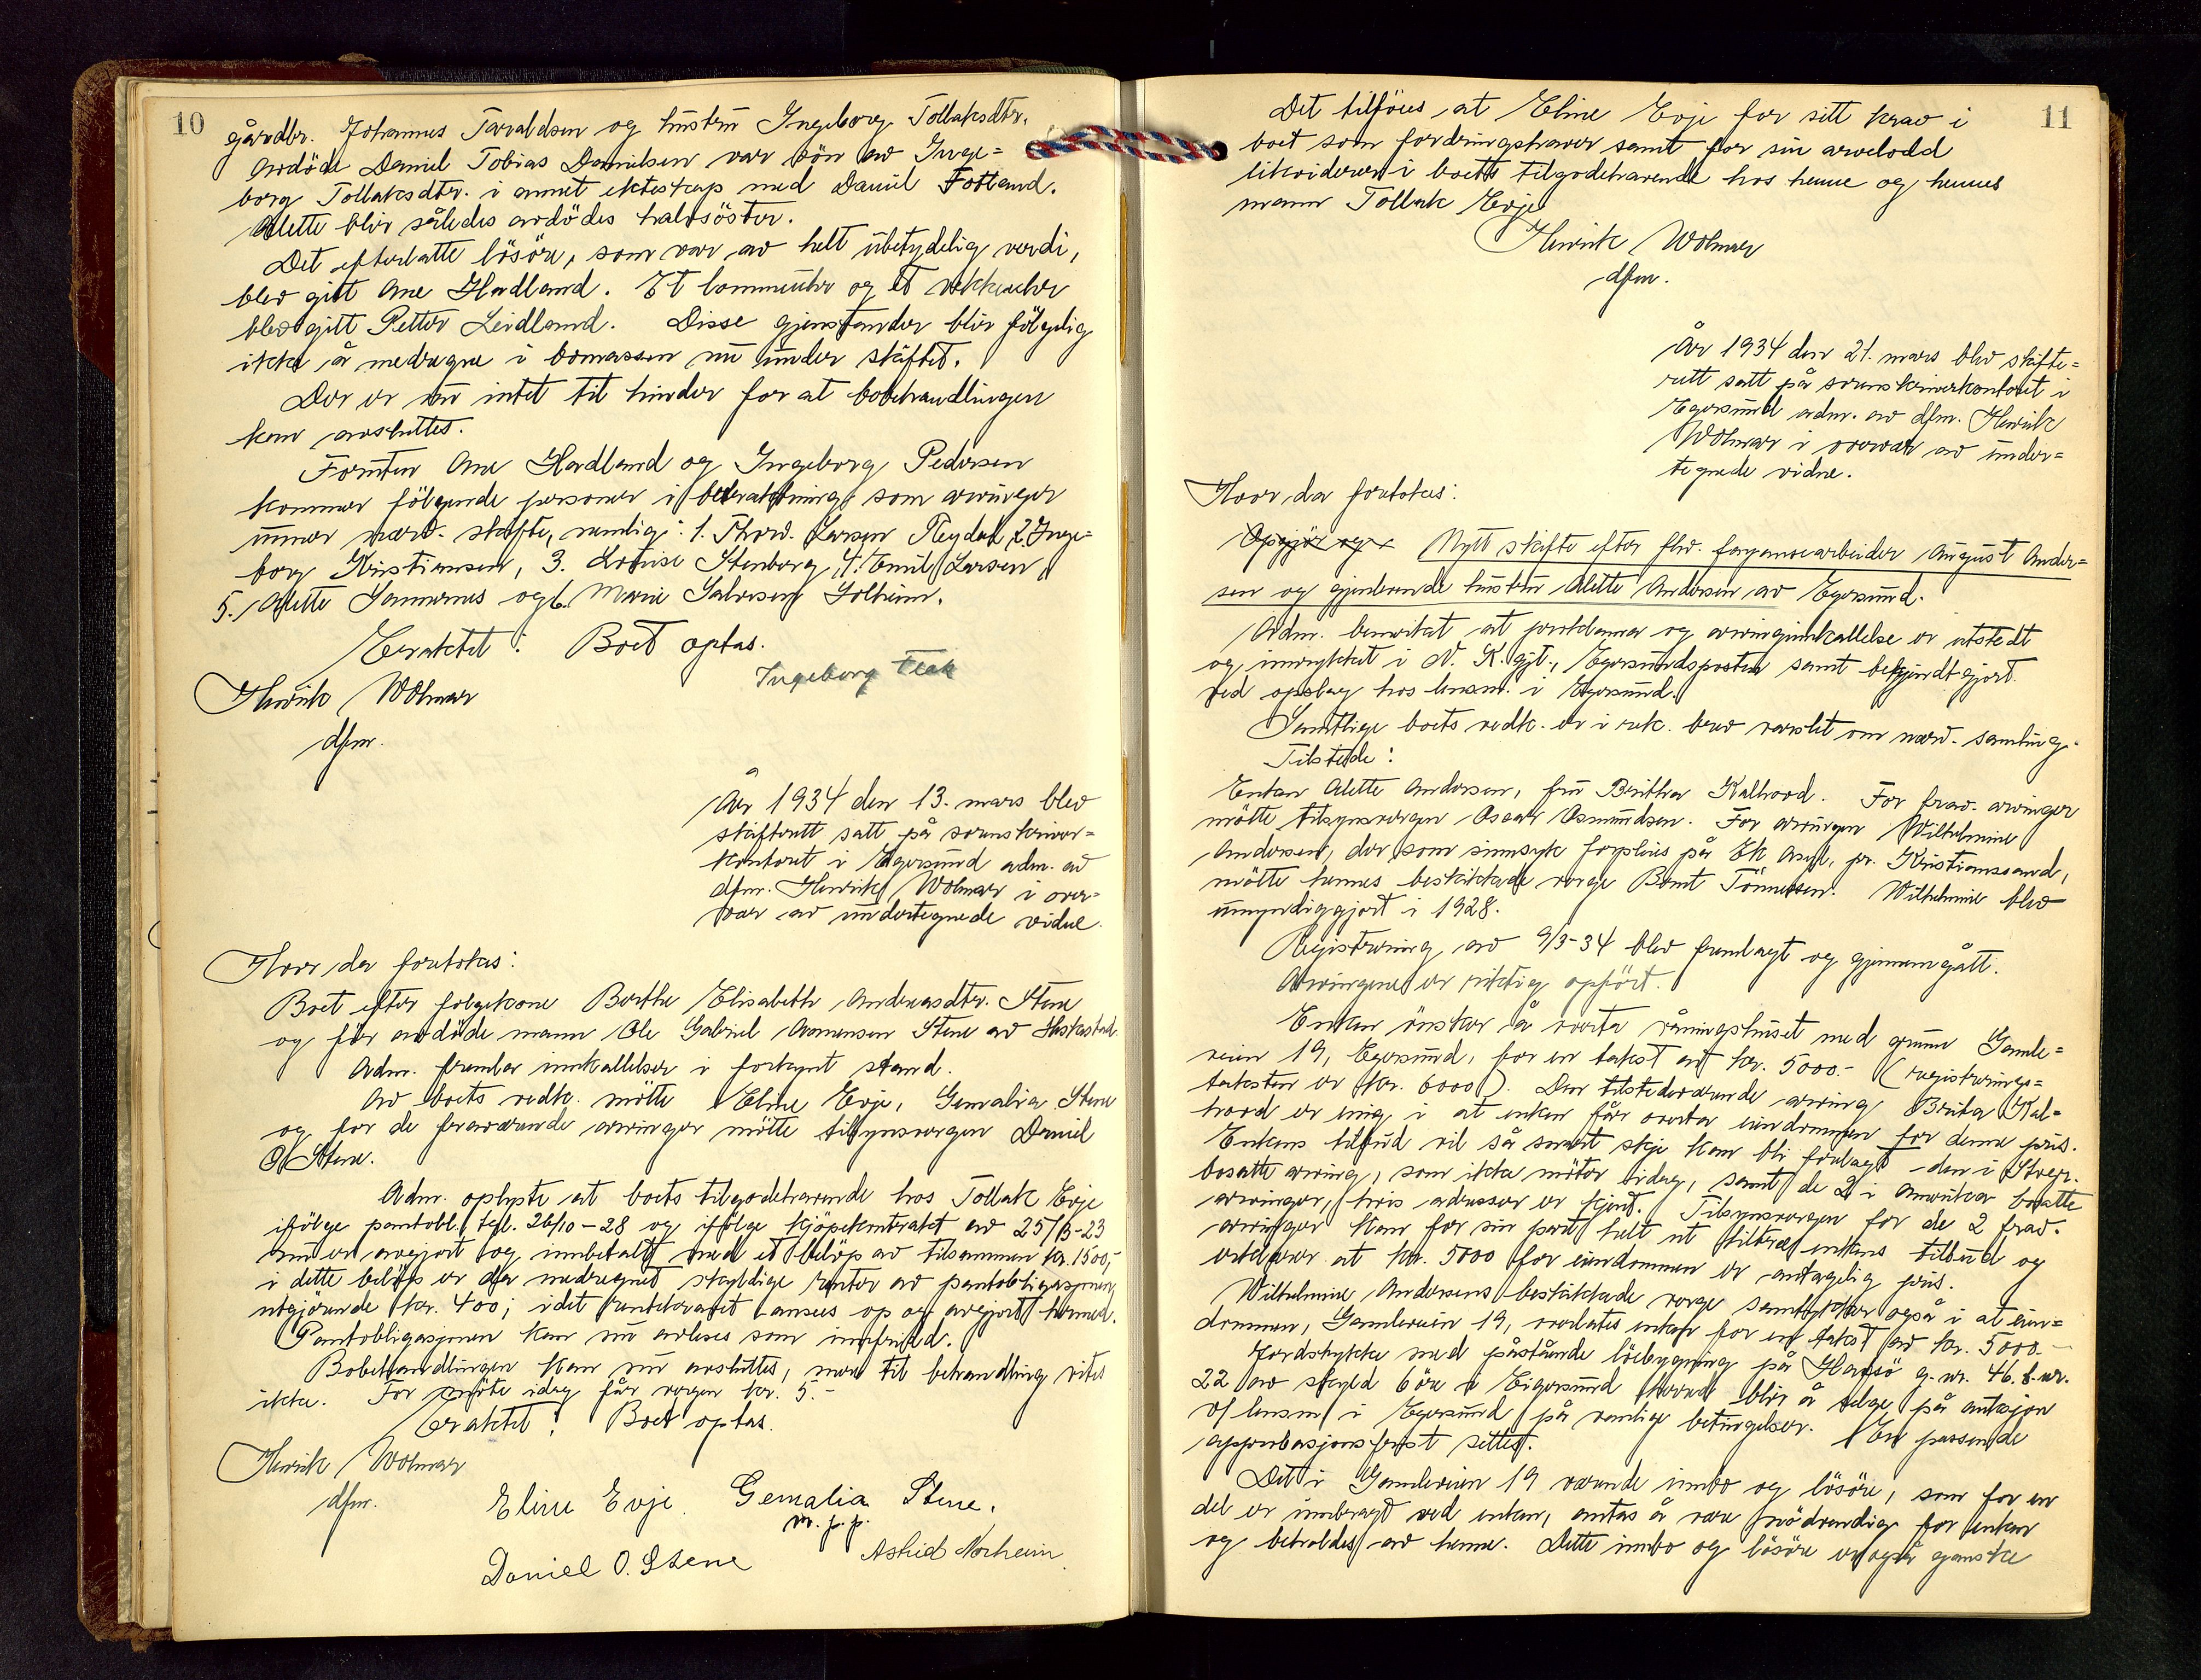 10
gårdbr. Johannes Taraldsen og hustru Ingeborg Tollaksdtr.
Avdöde Daniel Tobias Danielsen var sön av Inge=
borg Tollaksdtr. i annet ekteskap med Daniel Fotland.
Alette blir således avdödes halvsöster.
Det efterlatte lösöre, som var av helt ubetydelig verdi,
blev gitt Ane Hadland. Et lommeuhr og et vekkeuhr
blev gitt Petter Leidland. Disse gjenstander blir fölgelig
ikke å medregne i bomassen nu under skiftet.
Der er nu intet til hinder for at bobehandlingen
kan avsluttes.
Foruten Ane Hadland og Ingeborg Pedersen
kommer fölgende personer i betraktning som arvinger
under nærv. skifte, nemlig: 1. Thorv. Larsen Rejdal, 2. Inge-
borg Kristiansen, 3. Lovise Stenberg, 4. Emil Larsen,
5. Alette Sannernes og 6. Marie Salvesen Solheim.
Eraktet: Boet optas.
Ingeborg
Henrik Wolmar
dfm.
År 1934 den 13. mars blev
skifterett satt på sorenskriver=
kontoret i Egersund adm. av
dfm. Henrik Wolmar i over-
vær av undertegnede vidne.
Hvor da foretokes:
Boet efter folgekone Berthe Elisabeth Andreasdtr. Stene
og för avdöde mann Ole Gabriel Aamensen Stene av Heskestad.
Adm. fremla innkallelser i forkynt stand.
Av boets vedk. mötte Eline Evje, Gemalia Stene
og for de fraværende arvinger mötte tilsynsvergen Daniel
O. Stene.
Adm. oplyste at boets tilgodehavende hos Tollak Evje
ifölge pantobl. tgl. 26/10-28 og ifölge kjöpekontrakt av 25/5-23
nu er avgjort og innbetalt med et belöp av tilsammen kr. 1500,-
i dette belöp er da medregnet skyldige renter av pantobligasjonen,
utgjörende kr. 400; idet rentekravet ansees op og avgjort hermed.
Pantobligasjonen kan nu avleses som innfridd.
Bobehandlingen kan nu avsluttes, mere til behandling vites
ikke. For möte idag får vergen kr. 5.-
Eraktet: Boet optas.
Henrik Wolmar
dfm.
Eline Evje. Gemalia Stene.
m. p. p.
Daniel O. Stene
Astrid Norheim.
11
Det tilföies, at Eline Evje for sitt krav i
boet som fordringshaver samt for sin arvelodd
likviderer i boets tilgodehavende hos henne og hennes
mann Tollak Evje.
Henrik Wolmar
dfm.
År 1934 den 21. mars blev skifte=
rett satt på sorenskriverkontoret i
Egersund adm. av dfm. Henrik
Wolmar i overvær av under=
tegnede vidne.
Hvor da foretokes:
Opgjör og Nytt skifte efter fhv. fayansearbeider August Ander=
sen og gjenlevende hustru Alette Andersen av Egersund.
Adm. bemerket at proklama og arvinginnkallelse er utstedt
og innrykket i N. K. gjt., Egersundsposten samt bekjendtgjort
ved opslag hos lensm. i Egersund.
Samtlige boets vedk. er i rek. brev varslet om nærv. samling.
Tilstede:
Enken Alette Andersen, fru Brithe Kalhovd. For frav. arvinger
mötte tilsynsvergen Oscar Asmundsen. For arvingen Wilhelmine
Andersen, der som sinnsyk forpleies på Ek Asyl, pr. Kristianssand,
mötte hennes beskikkede verge Bernt Tönnessen. Wilhelmine blev
umyndiggjort i 1928.
Registrering av 9/3-34 blev fremlagt og gjennemgått.
Arvingene er riktig opfört.
Enken önsker å overta våningshuset med grunn Gamle=
veien 19, Egersund, for en takst av kr. 5000.- (registrerings=
taksten er kr. 6000). Den tilstedeværende arving Brita Kal=
hovd er enig i at enken får overta eiendommen for denne pris.
Enkens tilbud vil så snart skje kan bli forelagt - den i Stvgr.
bosatte arving, som ikke möter idag, samt de 2 i Amerika bosatte
arvinger, hvis adresser er kjent. Tilsynsvergen for de 2 frav.
arvinger kan for sin part helt ut tiltre enkens tilbud og
erklærer at kr. 5000 for eiendommen er antagelig pris.
Wilhelmine Andersens beskikkede verge samtykker også i at eien=
dommen, Gamleveien 19, overlates enken for en takst av kr. 5000.-
Jordstykke med påstående löebygning på Hafsö g.nr. 46. b.nr.
22 av skyld 6 öre i Eigersund herred blir å selge på auksjon
v/ lensm. i Egersund på vanlige betingelser. En passende
approbasjonsfrist settes.
Det i Gamleveien 19 værende innbo og lösöre, som for en
del er innbragt ved enken, antas å være nödvendig for enken
og beholdes av henne. Dette innbo og lösöre er også ganske